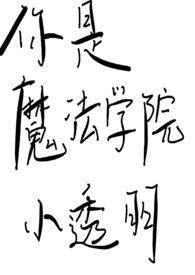 你是
魔法学院
小透明